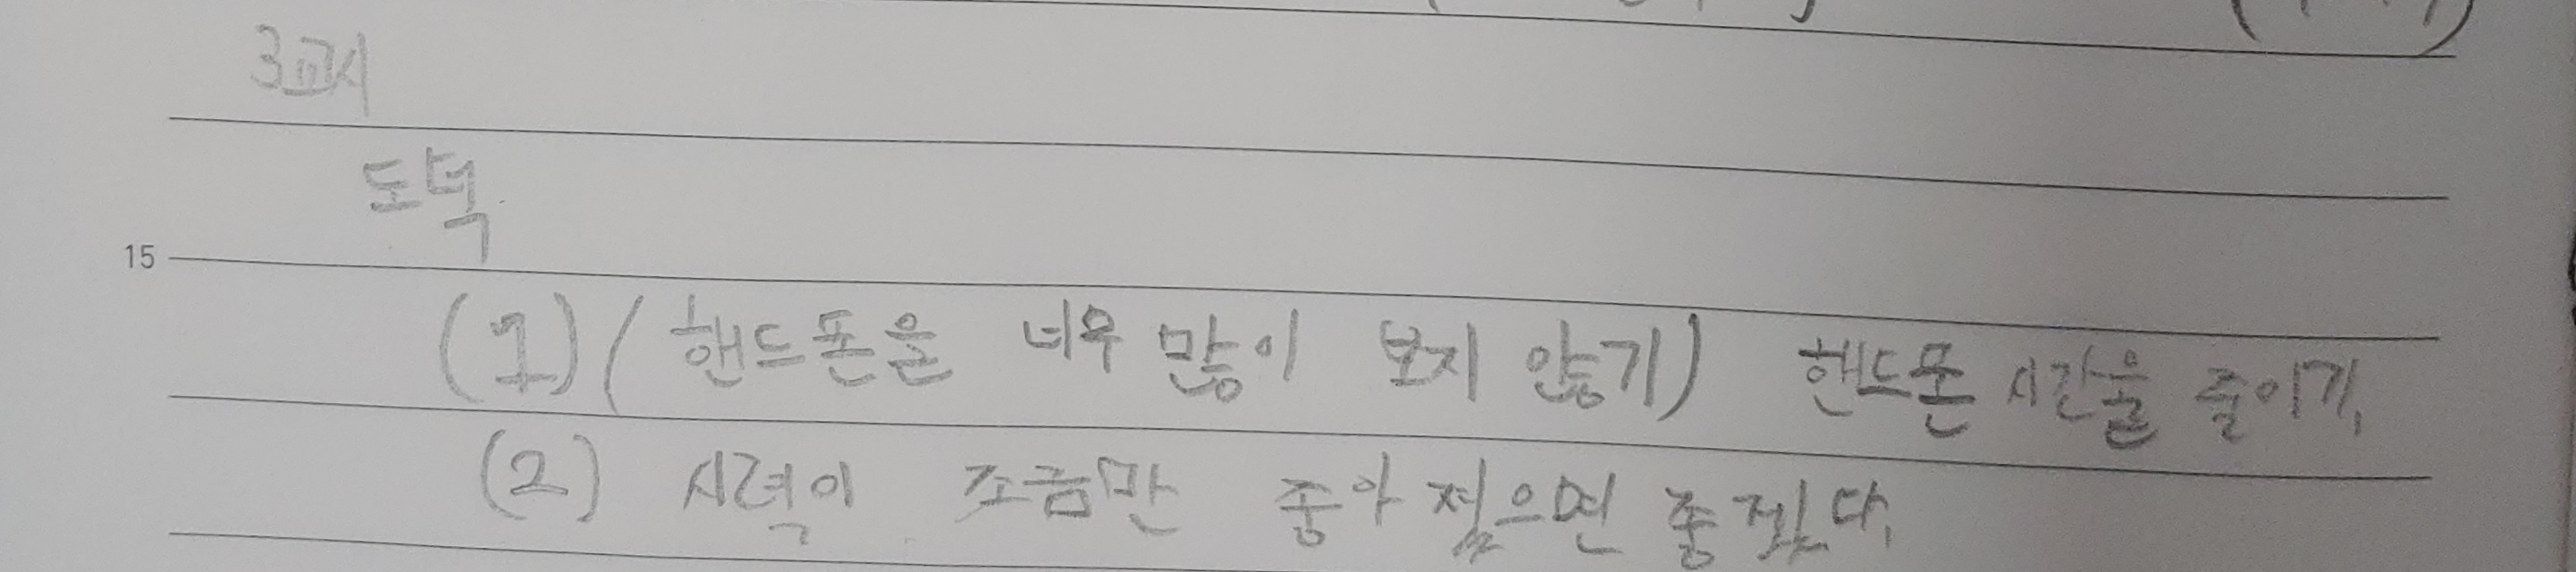 3교시
도덕
15
(1) (핸드폰을 너무 많이 보지 않기) 핸드폰 시간을 줄이기.
(2) 시력이 조금만 좋아 졌으면 좋겠다.